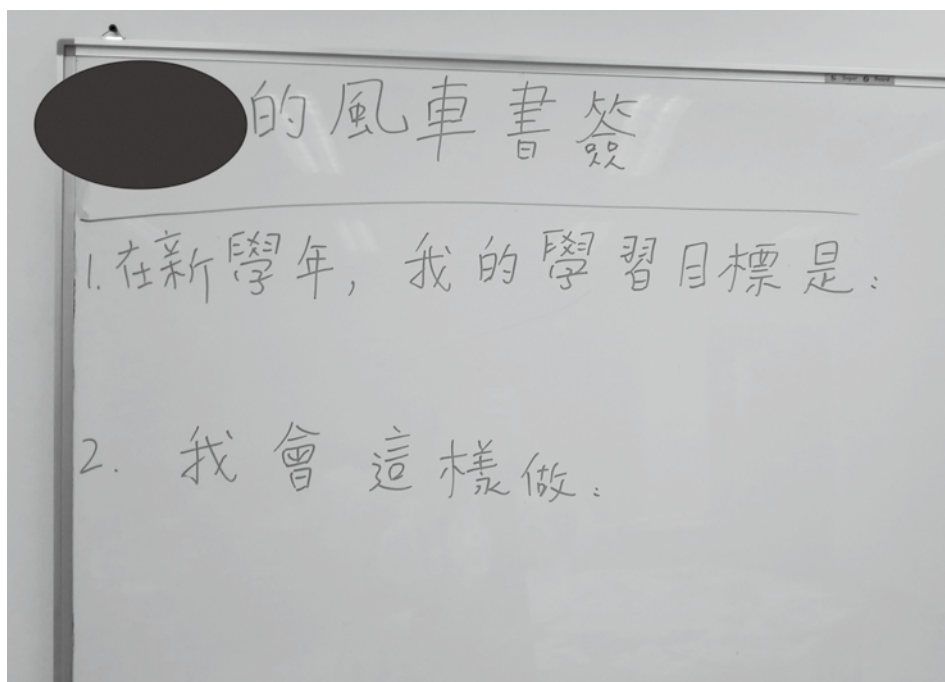 的風車書簽
1.在新學年，我的學習目標是：
2. 我會這樣做：